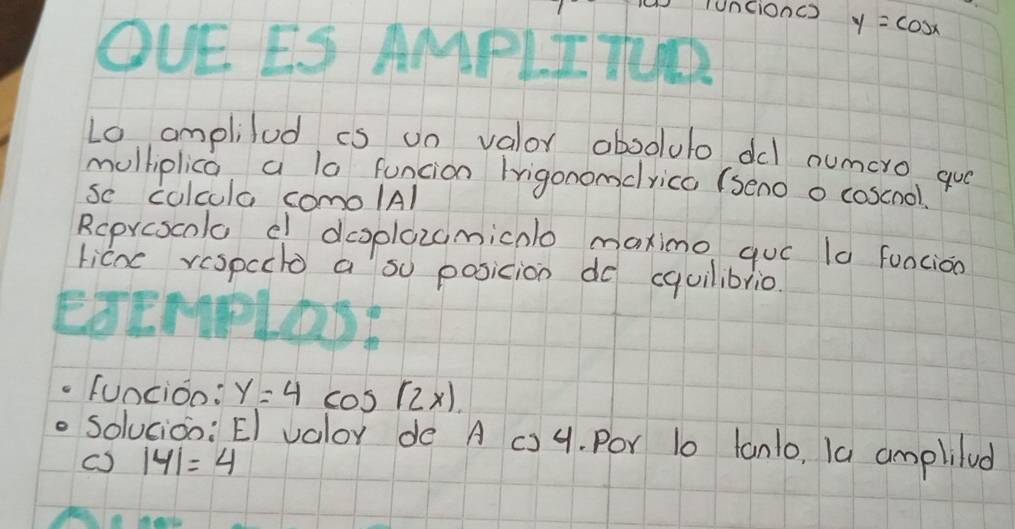 funciones y = cosx
QUE ES AMPLITUD
La amplitud es un valor absoluto del numero que
multiplica a la funcion trigonometrica (seno o coseno).
se calcula como |A|
Representa el desplazamiento maximo que la función
tiene respecto a su posición de equilibrio.
EJEMPLOS:
• función: Y = 4 cos (2x).
• Solución: El valor de A es 4. Por lo tanto, la amplitud
es |4| = 4